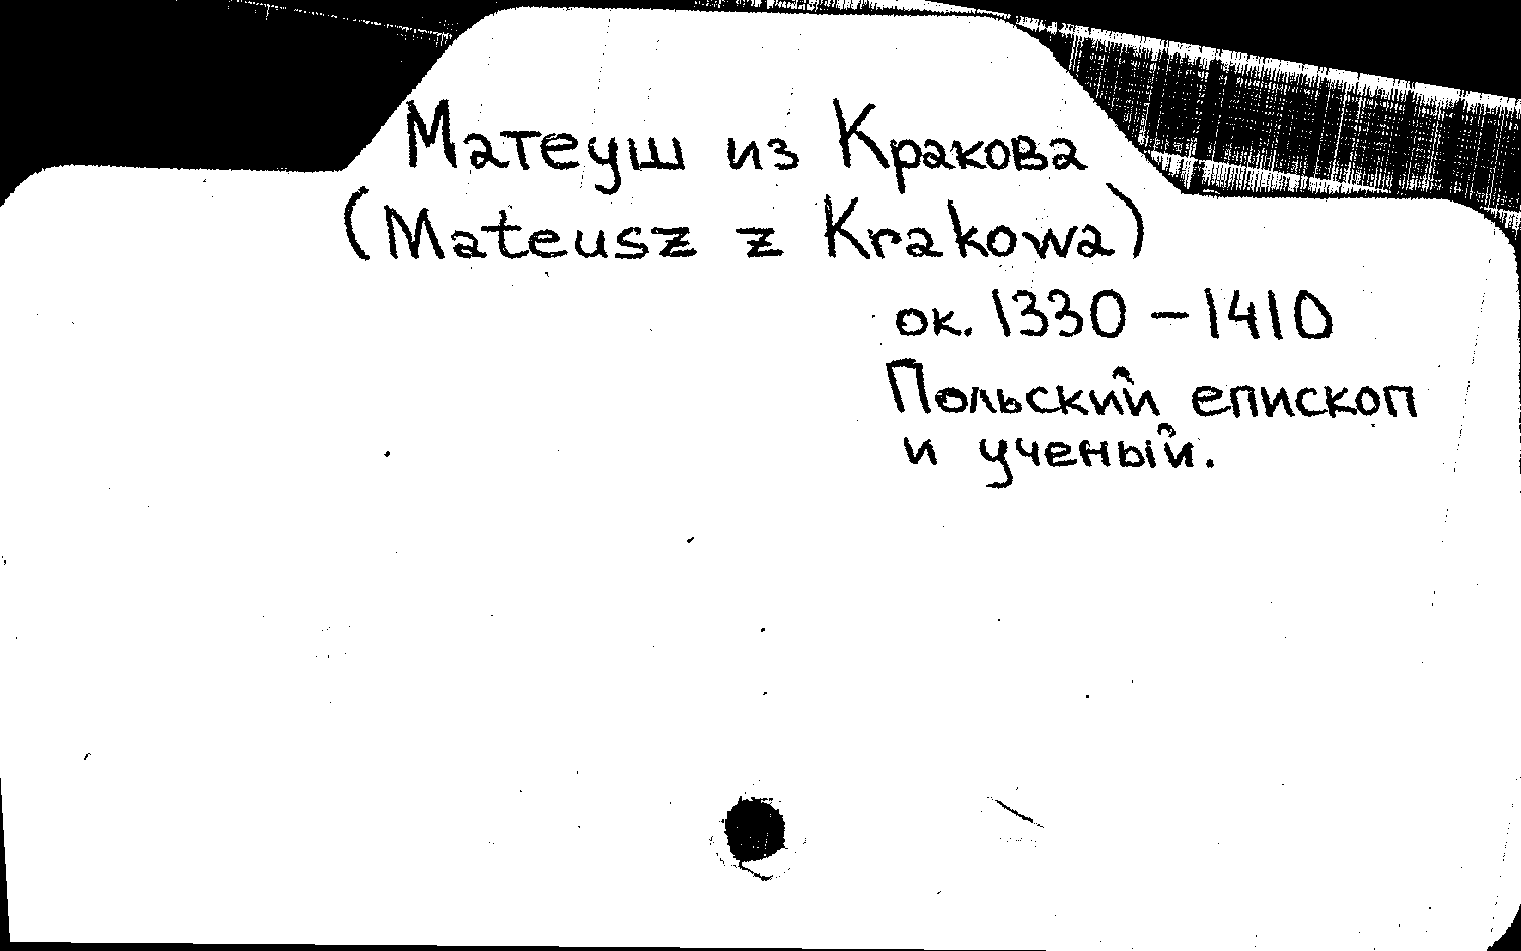 Матеуш из Кракова
(Mateusz z Krakowa)
ок. 1330 – 1410
Польский епископ
и ученый.